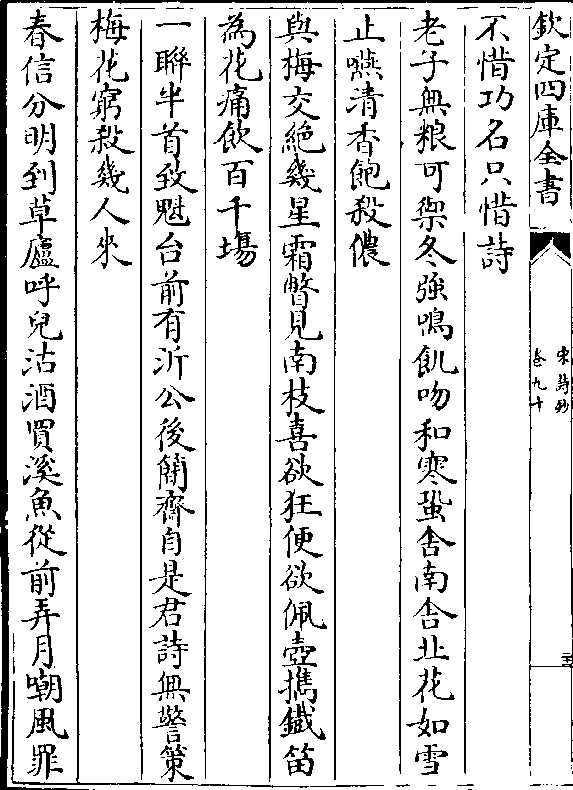 欽定四庫全書
宋詩鈔
卷九十
不惜功名只惜詩
老子無粮可禦冬強鳴飢吻和寒蛩舎南舎北花如雪
止嚥清香飽殺儂
與梅交絶幾星霜瞥見南枝喜欲狂便欲佩壺攜鐵笛
為花痛飲百千塲
一聯半首致魁台前有沂公後簡齋自是君詩無警策
梅花窮殺幾人來
春信分明到草廬呼兒沽酒買溪魚從前弄月嘲風罪